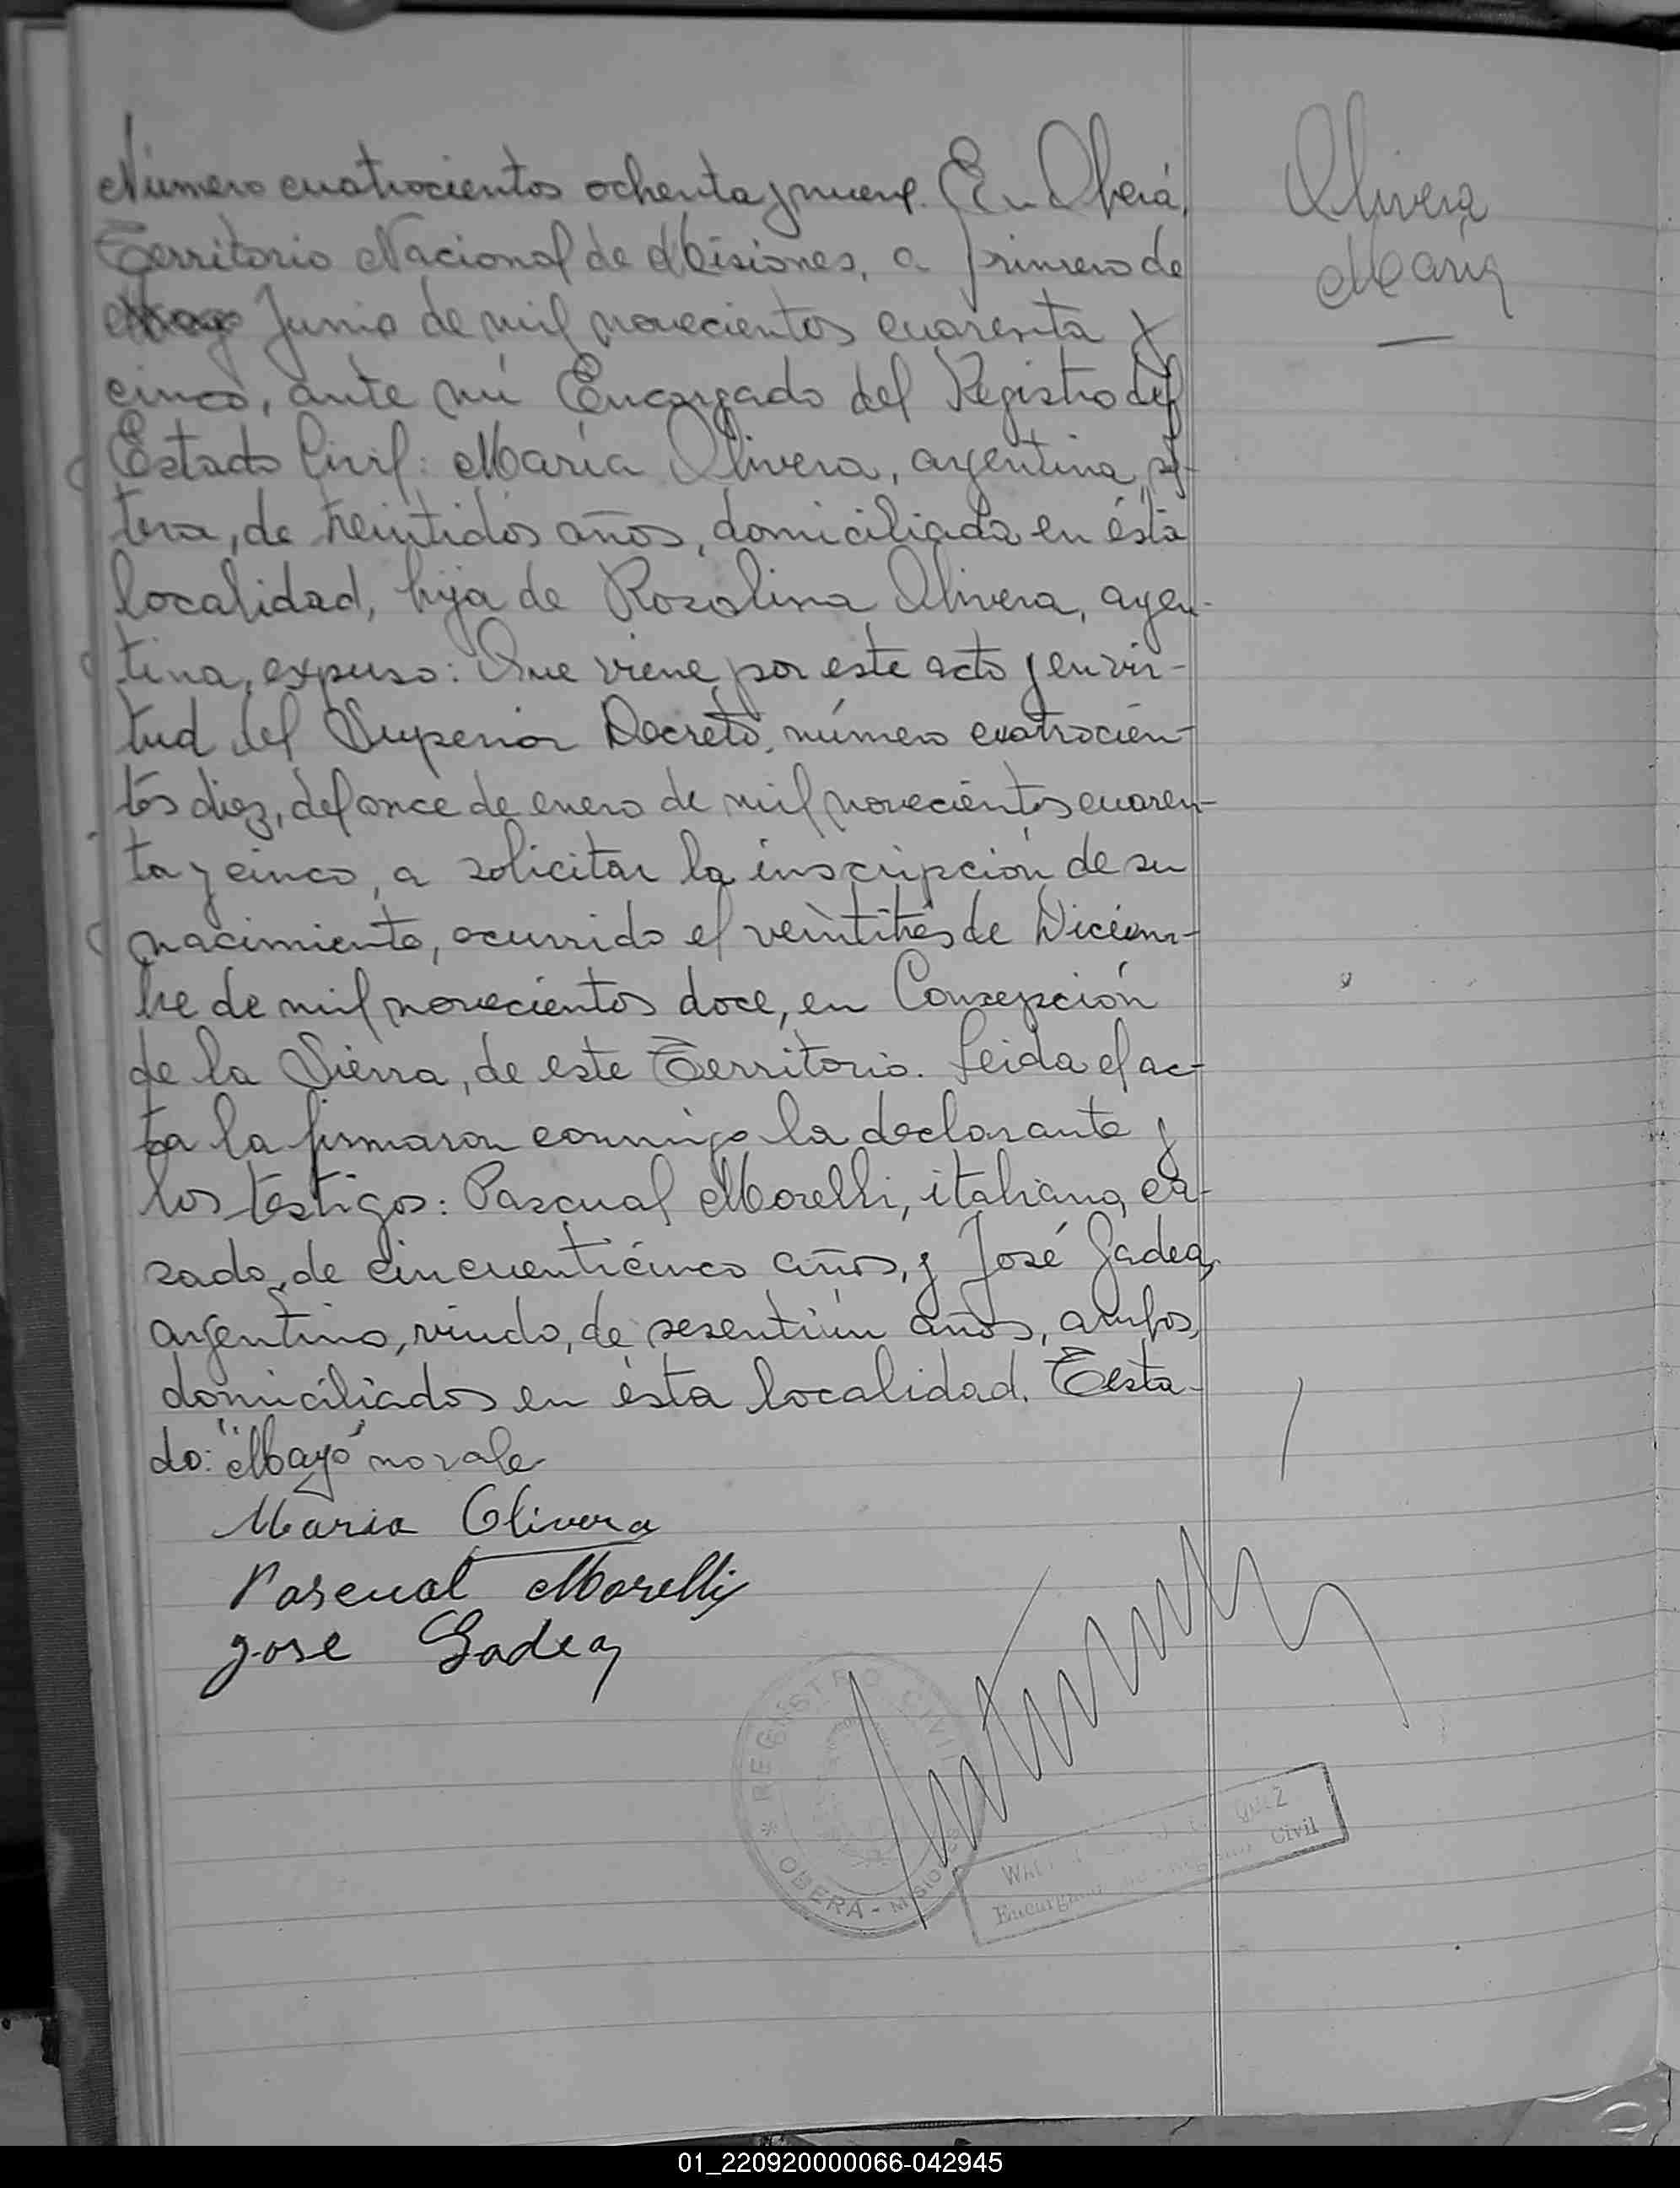 Número cuatrocientos ochenta y nueve. En Oberá,
Territorio Nacional de Misiones, a primero de
Mayo Junio de mil novecientos cuarenta y
cinco, ante mí Encargado del Registro del
Estado Civil: María Olivera, argentina, sol-
tera, de treintidós años, domiciliada en ésta
localidad, hija de Rosolina Olivera, argen-
tina, expuso: Que viene por este acto y en vir-
tud del Superior Decreto, número cuatrocien-
tos diez, del once de enero de mil novecientos cuaren-
ta y cinco, a solicitar la inscripción de su
nacimiento, ocurrido el veintitrés de Diciem-
bre de mil novecientos doce, en Consepción
de la Sierra, de este Territorio. Leida el ac-
ta la firmaron conmigo la declarante y
los testigos: Pascual Morelli, italiano, ca-
sado, de cincuenticinco años, y José Gadea,
argentino, viudo, de sesentiún años, ambos,
domiciliados en ésta localidad. Testa-
do: "Mayo" no vale
Maria Olivera
Pascual Morelli
Jose Gadea
Olivera
María
REGISTRO CIVIL
OBERÁ - MISIONES
Encargado Civil
01_220920000066-042945